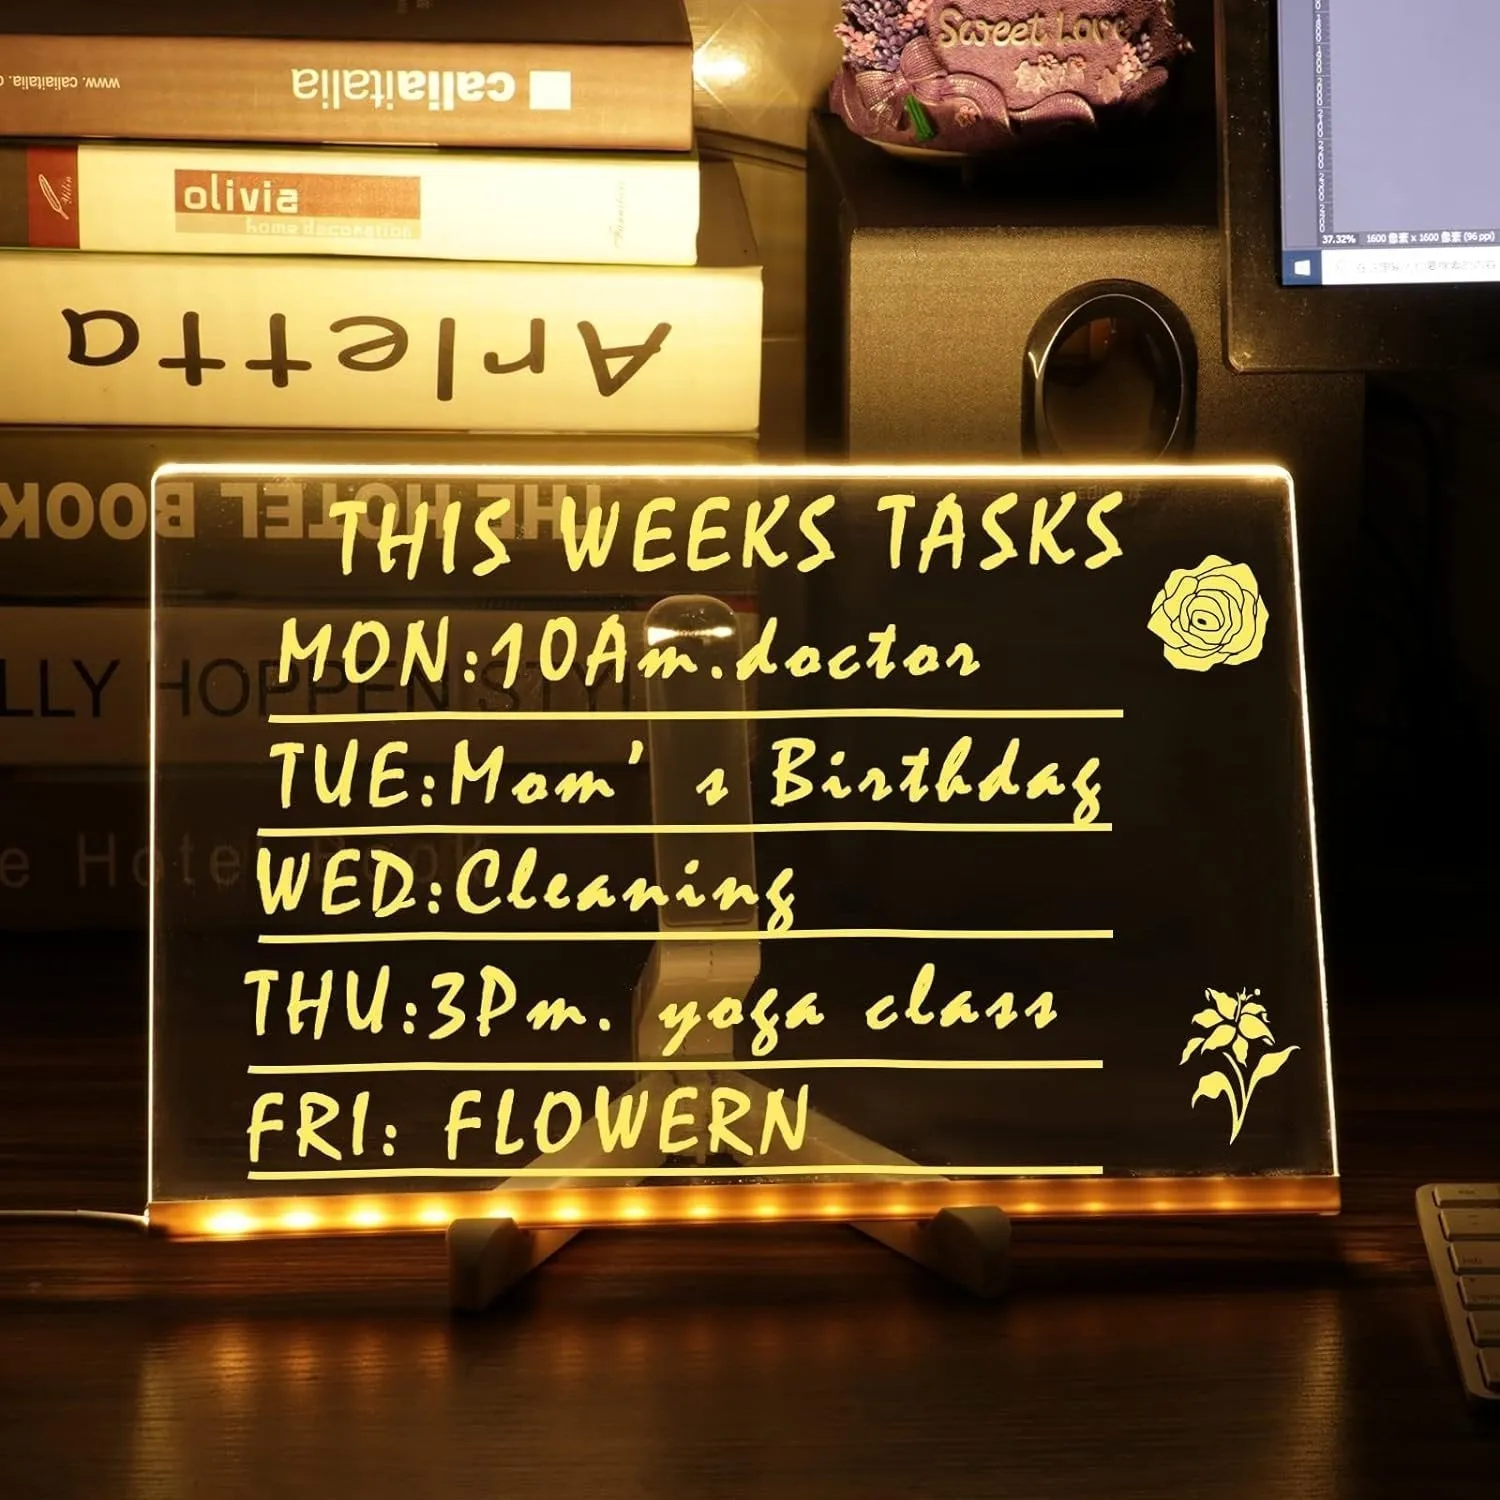 www.caliaitalia.c
caliaitalia
olivia
home decoration
Arletta
THE HOTEL BOOK
LLY HOPPEN STY
e Hotel Book
Sweet Love
37.32% 1600 像素 x 1600 像素 (96 ppi)
THIS WEEKS TASKS
MON:10Am.doctor
TUE:Mom's Birthday
WED:Cleaning
THU:3Pm. yoga class
FRI: FLOWERN